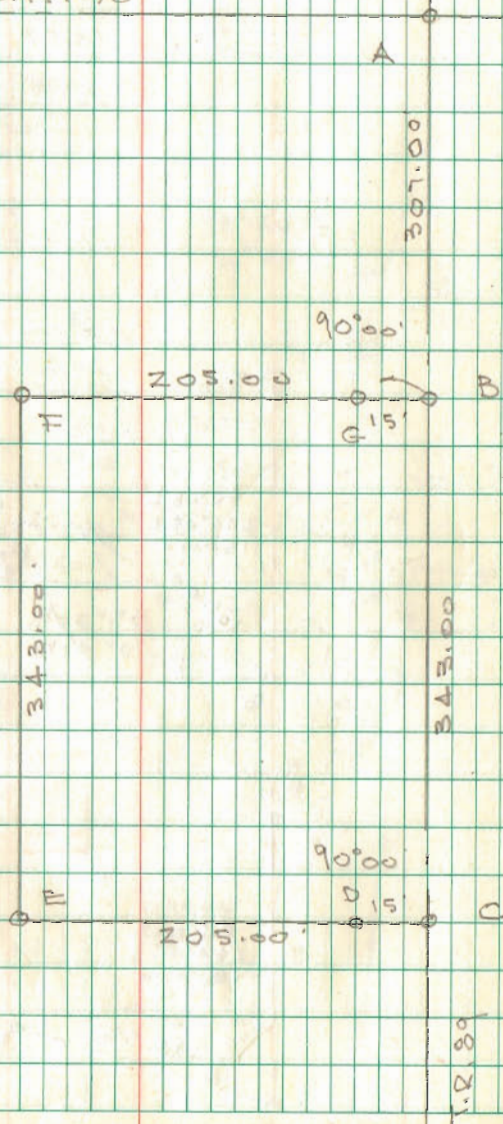 A
307.00
90°00'
205.00
B
F
G 15'
343.00
343.00
90°00
E
D 15'
C
205.00'
T.R. 89